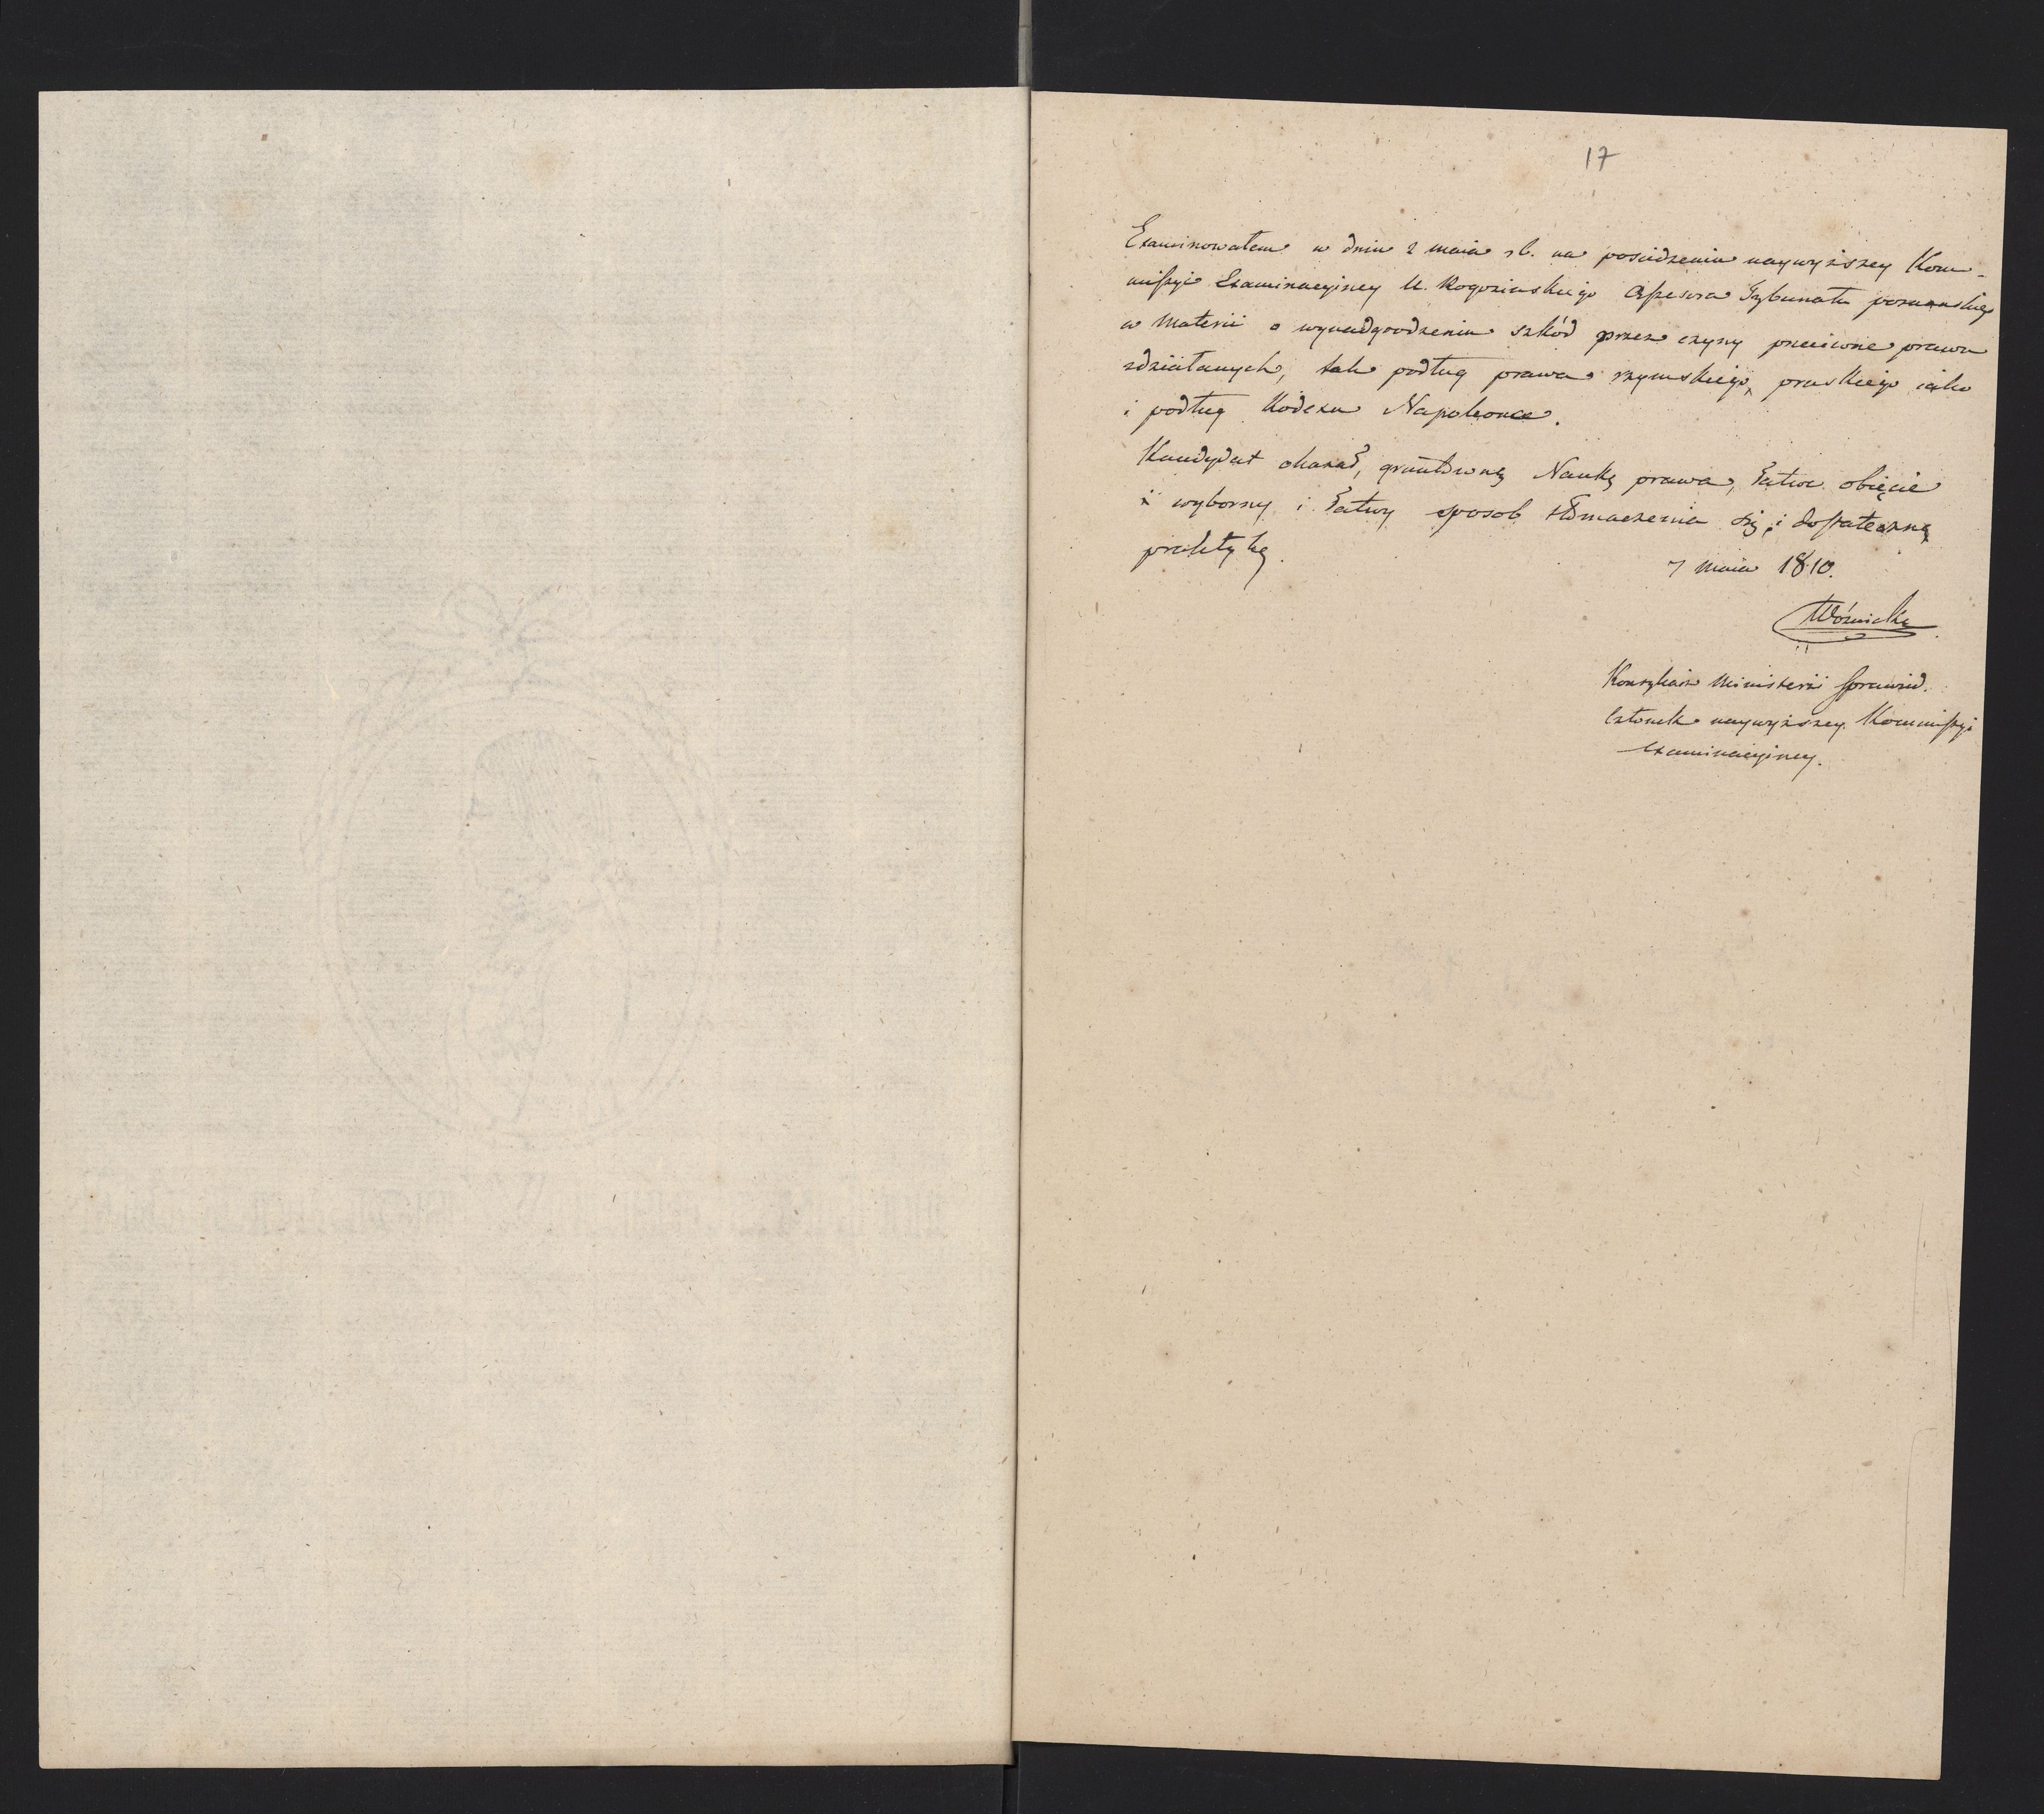 17
Examinowałem w dniu 2 maia r b. na posiedzeniu naywyższey Kom-
missyi Examinacyiney U. Rogozińskiego Assessora Trybunału poznanskiego
w Materii o wynadgrodzeniu szkód przez czyny przeciwne prawu
zdziałanych, tak podług prawa rzymskiego, pruskiego iako
i podług Kodexu Napoleona.
Kandydat okazał, gruntowną Naukę prawa, łatwe obięcie
i wyborny i łatwy sposob tłomaczenia się, i dostateczną
praktykę.
7 maia 1810.
Woźnicki
Konsyliarz Ministerii Sprawied.
Członek naywyższey Kommissyi
Examinacyiney.